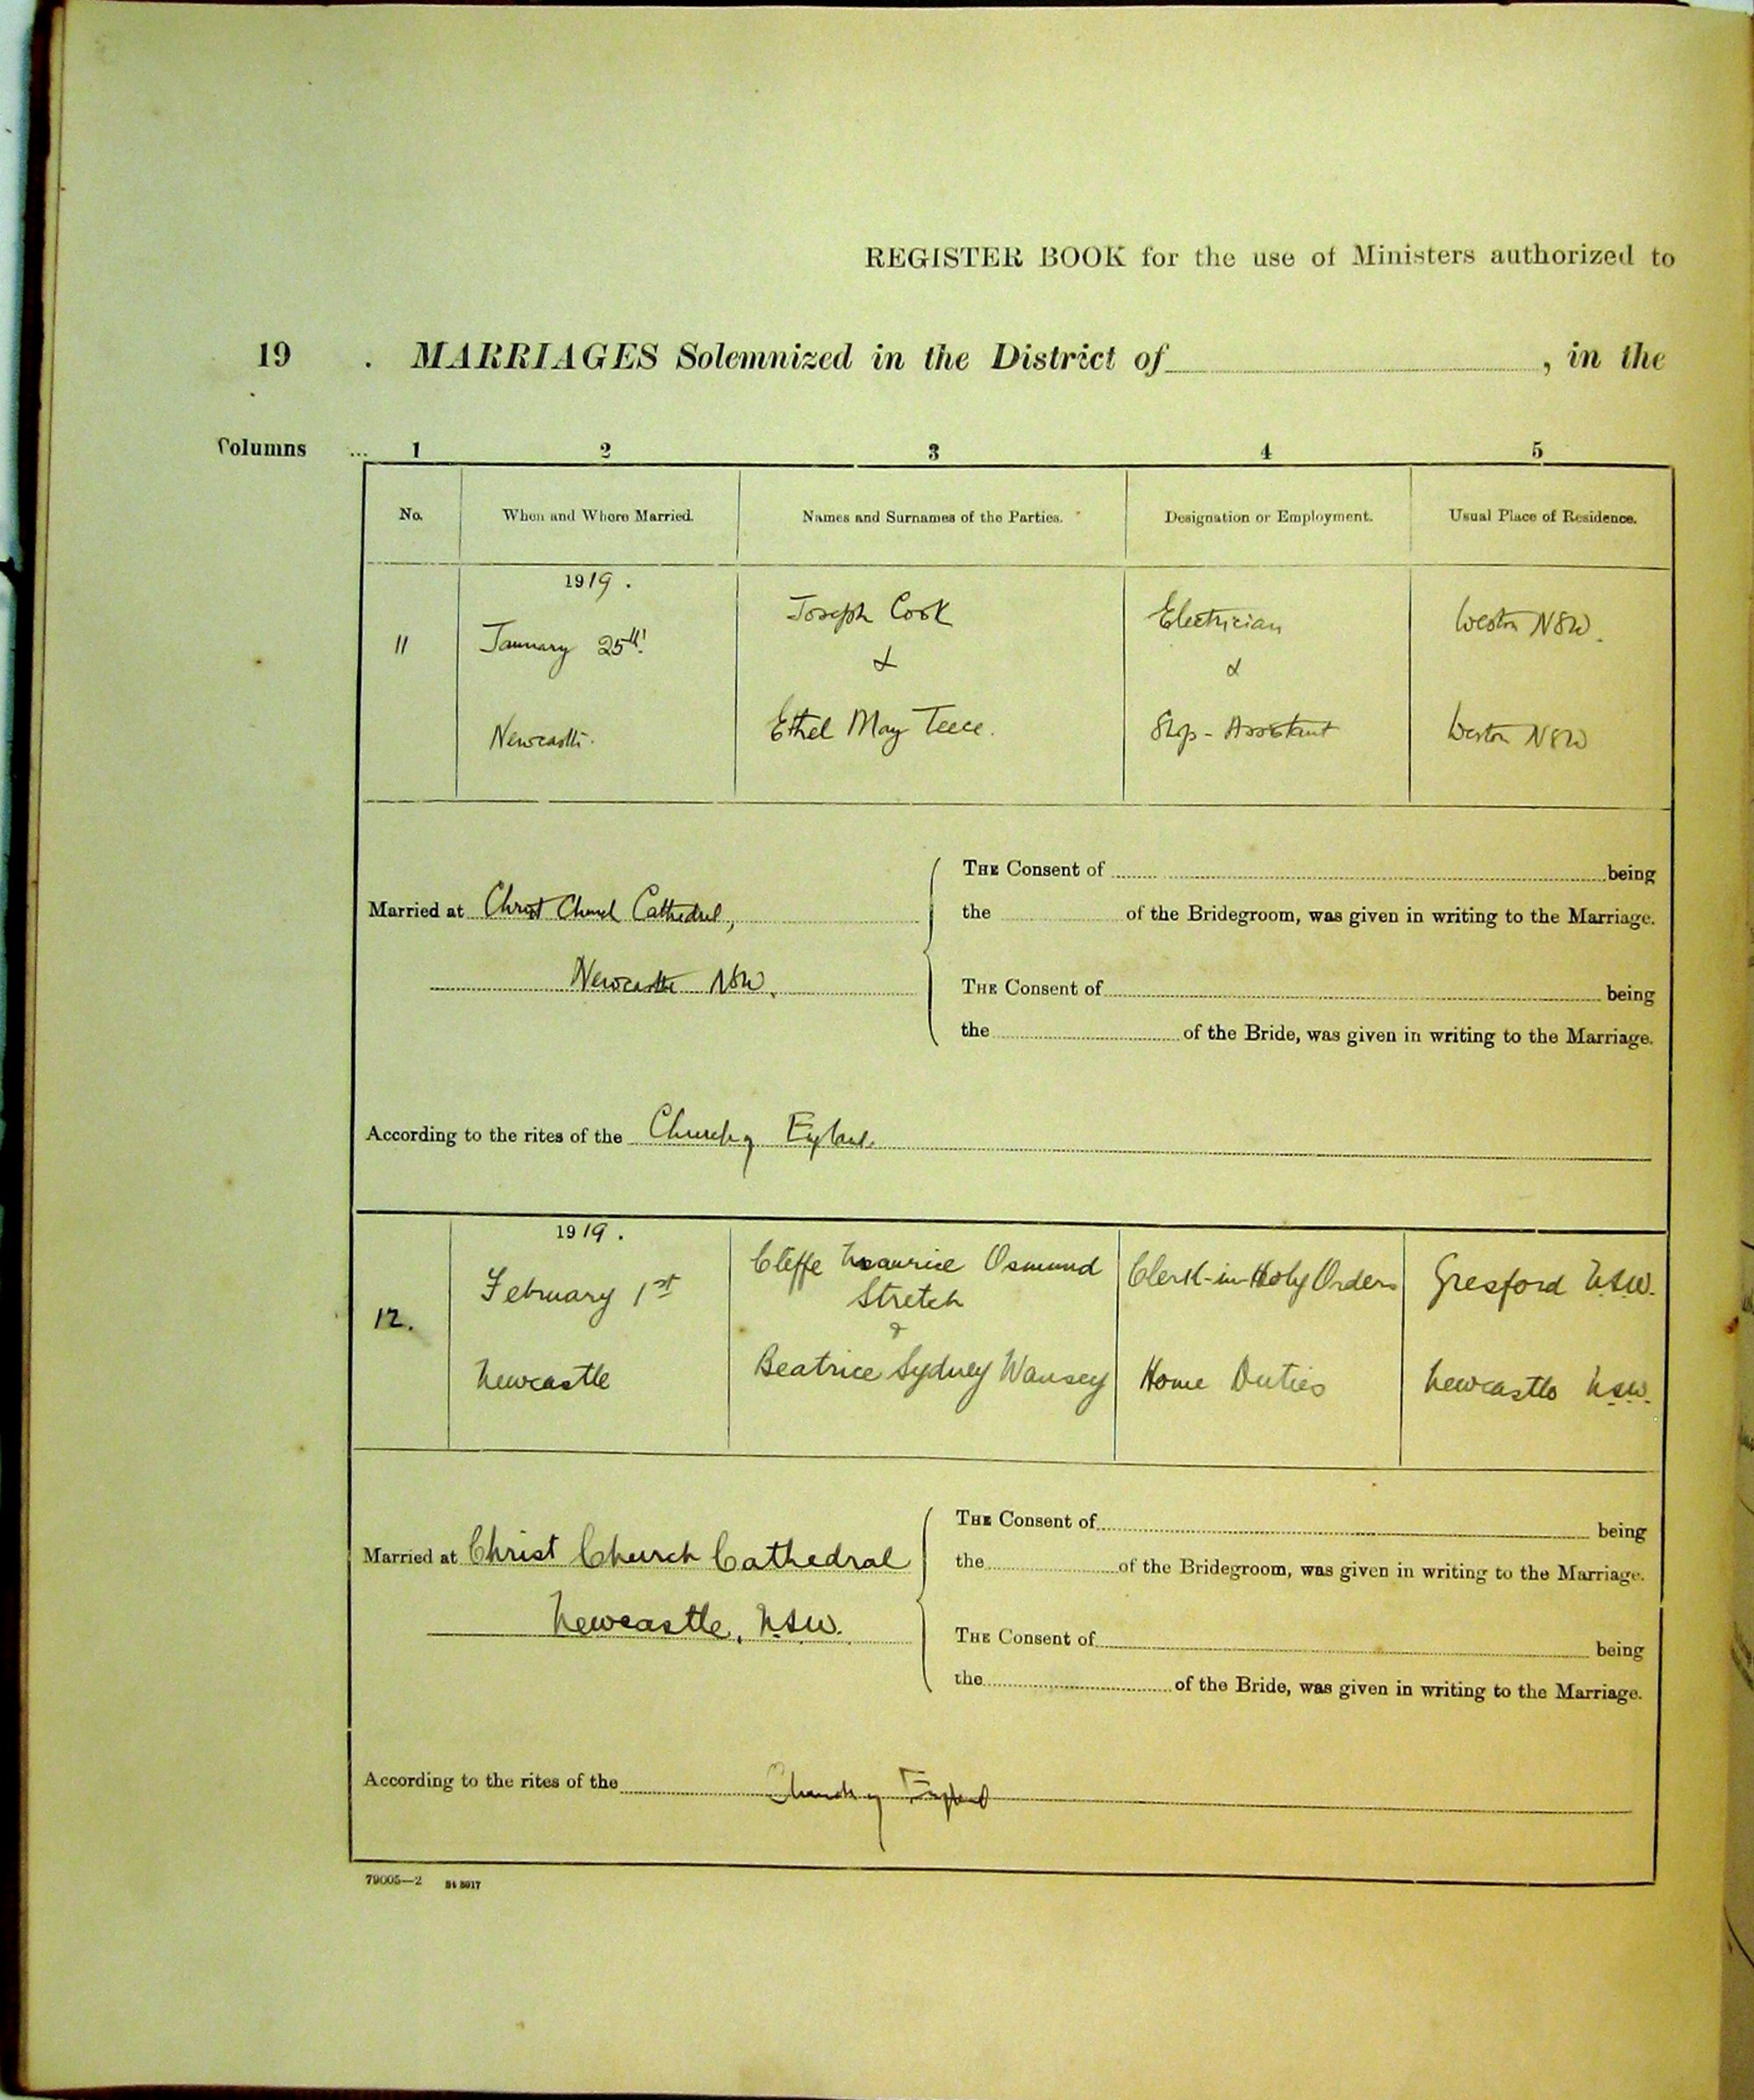 REGISTER BOOK for the use of Ministers authorized to
19 . MARRIAGES Solemnized in the District of , in the
Columns ... 1 2 3 4 5
No. When and Where Married. Names and Surnames of the Parties. Designation or Employment. Usual Place of Residence.
1919.
Joseph Cook Electrician Weston NSW.
11 January 25th.
& &
Newcastle. Ethel May Teece. Shop-Assistant Weston NSW
THE Consent of being
Married at Christ Church Cathedral, the of the Bridegroom, was given in writing to the Marriage.
Newcastle NSW. THE Consent of being
the of the Bride, was given in writing to the Marriage.
According to the rites of the Church of England.
1919.
Cleffe Maurice Osmund Clerk-in-Holy Orders Gresford NSW.
February 1st Stretch
12. &
Newcastle Beatrice Sydney Wansey Home Duties Newcastle NSW.
THE Consent of being
Married at Christ Church Cathedral the of the Bridegroom, was given in writing to the Marriage.
Newcastle, NSW. THE Consent of being
the of the Bride, was given in writing to the Marriage.
According to the rites of the Church of England
79005—2